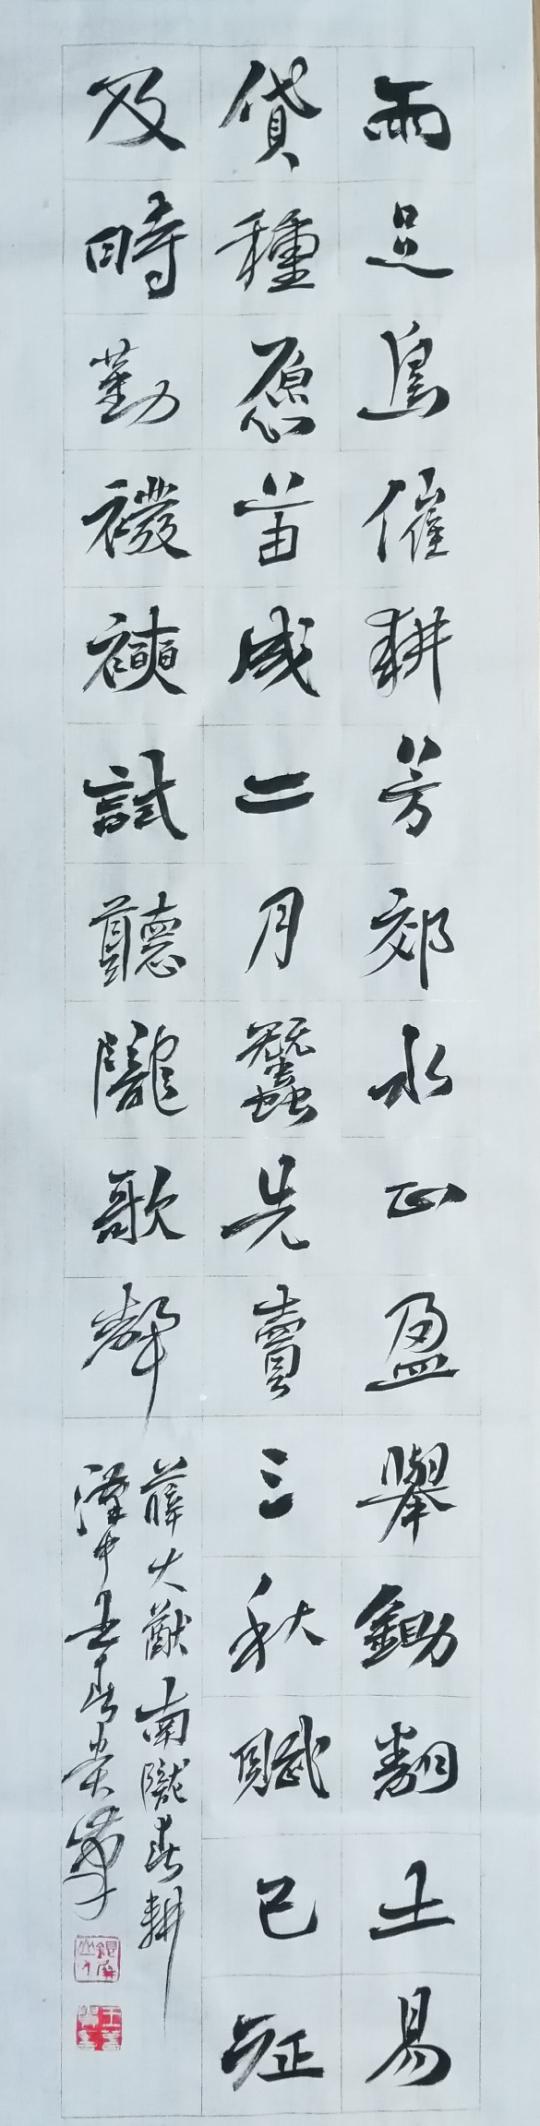 雨足島催耕芳郊水正盈舉鋤翻土易
貸種愿苗成二月蠶先賣三秋賦已征
及時勤襏襫試聽隴歌聲
薛大猷南隴春耕
漢中王春貴筆